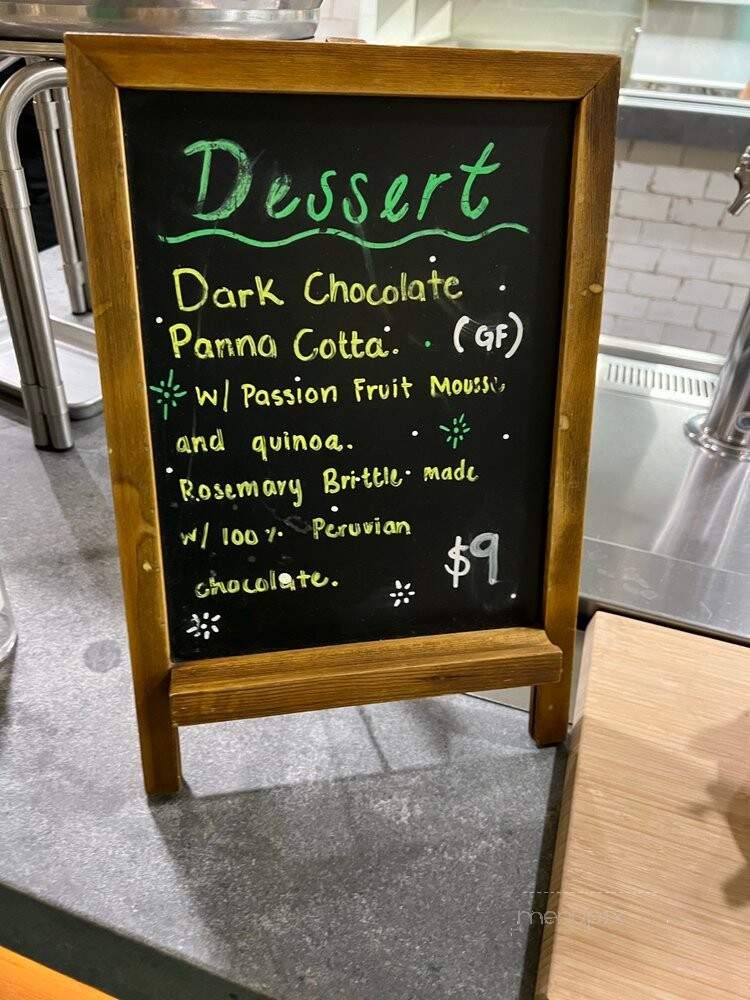 Dessert
Dark Chocolate
Panna Cotta. (GF)
w/ Passion Fruit Mousse
and quinoa.
Rosemary Brittle made
w/ 100% Peruvian
chocolate.
$9